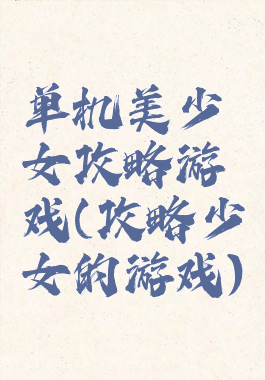 单机美少
女攻略游
戏(攻略少
女的游戏)